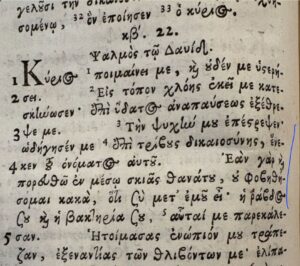 γελῦσι τὴν δικαιοσ
σομένῳ, 32 ὃν ἐποίησεν 33 ὁ κύριος.
κβʹ. 22.
Ψαλμὸς τῷ Δαυίδ.
1 Κύριος 1 ποιμαίνει με, κỳ οὐδέν με ὑστερή-
2 σει. 2 Εἰς τόπον χλόης ἐκεῖ με κατε-
σκήνωσεν· ἐπὶ ὕδατος ἀναπαύσεως ἐξέθρε-
3 ψέ με. 3 Τὴν ψυχήν μου ἐπέστρεψεν·
ὡδήγησέν με 4 ἐπὶ τρίβους δικαιοσύνης, ἕνε-
4 κεν τοῦ ὀνόματος αὐτοῦ. Ἐὰν γὰρ κỳ
πορευθῶ ἐν μέσῳ σκιᾶς θανάτου, οὐ φοβηθή-
σομαι κακά, ὅτι σὺ μετ' ἐμοῦ εἶ· ἡ ῥάβδος
σου κỳ ἡ βακτηρία σου, 5 αὗταί με παρεκάλε-
5 σαν. Ἡτοίμασας ἐνώπιόν μου τράπε-
ζαν, ἐξεναντίας τῶν θλιβόντων με· ἐλίπα-